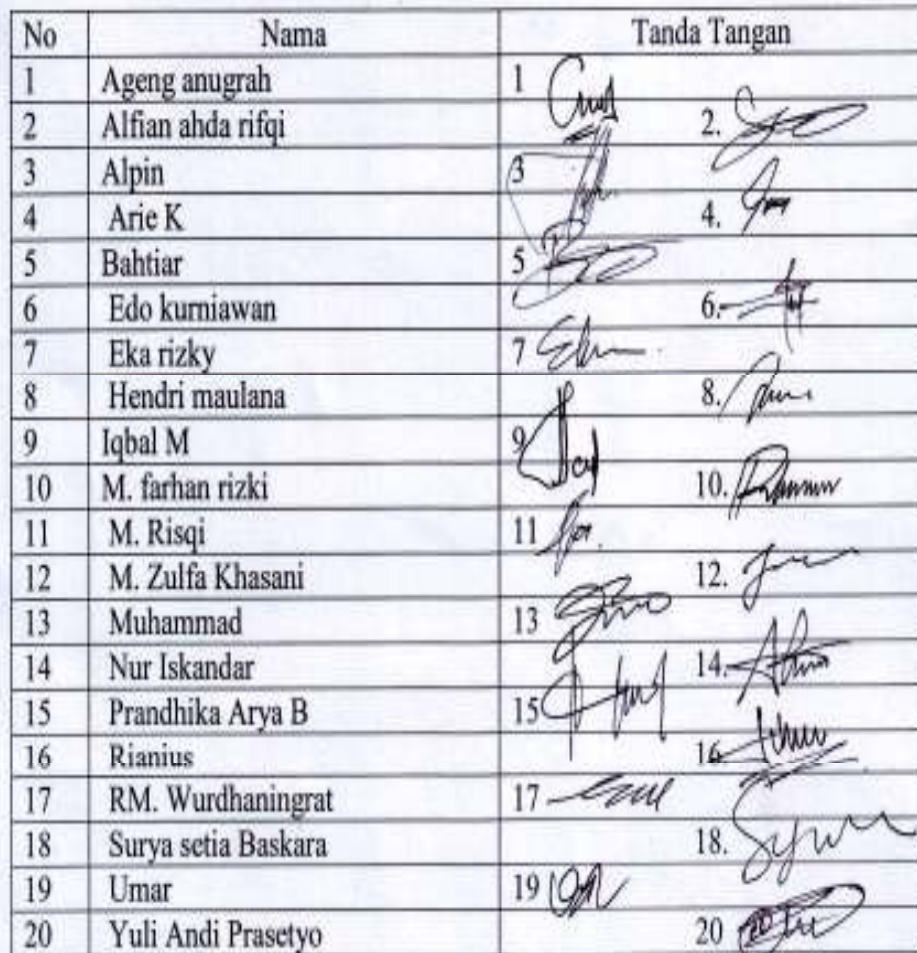 No Nama Tanda Tangan
1 Ageng anugrah 1
2 Alfian ahda rifqi 2.
3 Alpin 3
4 Arie K 4.
5 Bahtiar 5
6 Edo kurniawan 6.
7 Eka rizky 7
8 Hendri maulana 8.
9 Iqbal M 9
10 M. farhan rizki 10.
11 M. Risqi 11
12 M. Zulfa Khasani 12.
13 Muhammad 13
14 Nur Iskandar 14.
15 Prandhika Arya B 15
16 Rianius 16
17 RM. Wurdhaningrat 17
18 Surya setia Baskara 18.
19 Umar 19
20 Yuli Andi Prasetyo 20